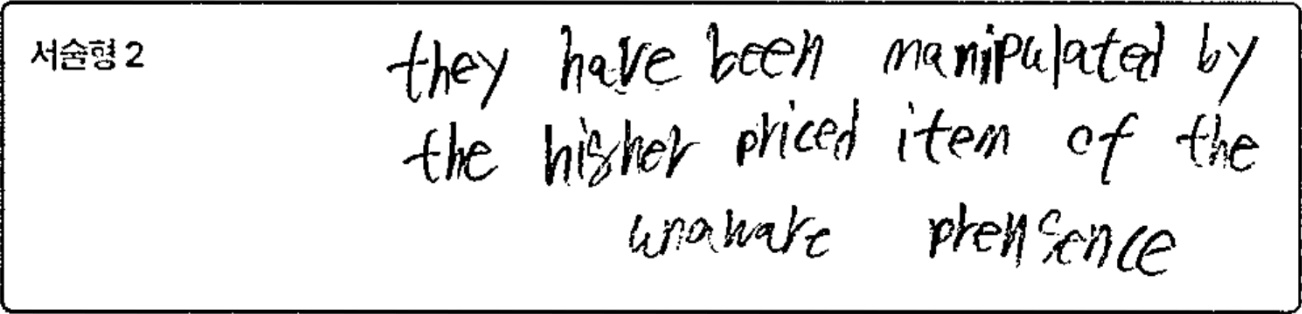 서술형 2
they have been manipulated by
the higher priced item of the
unaware prensence